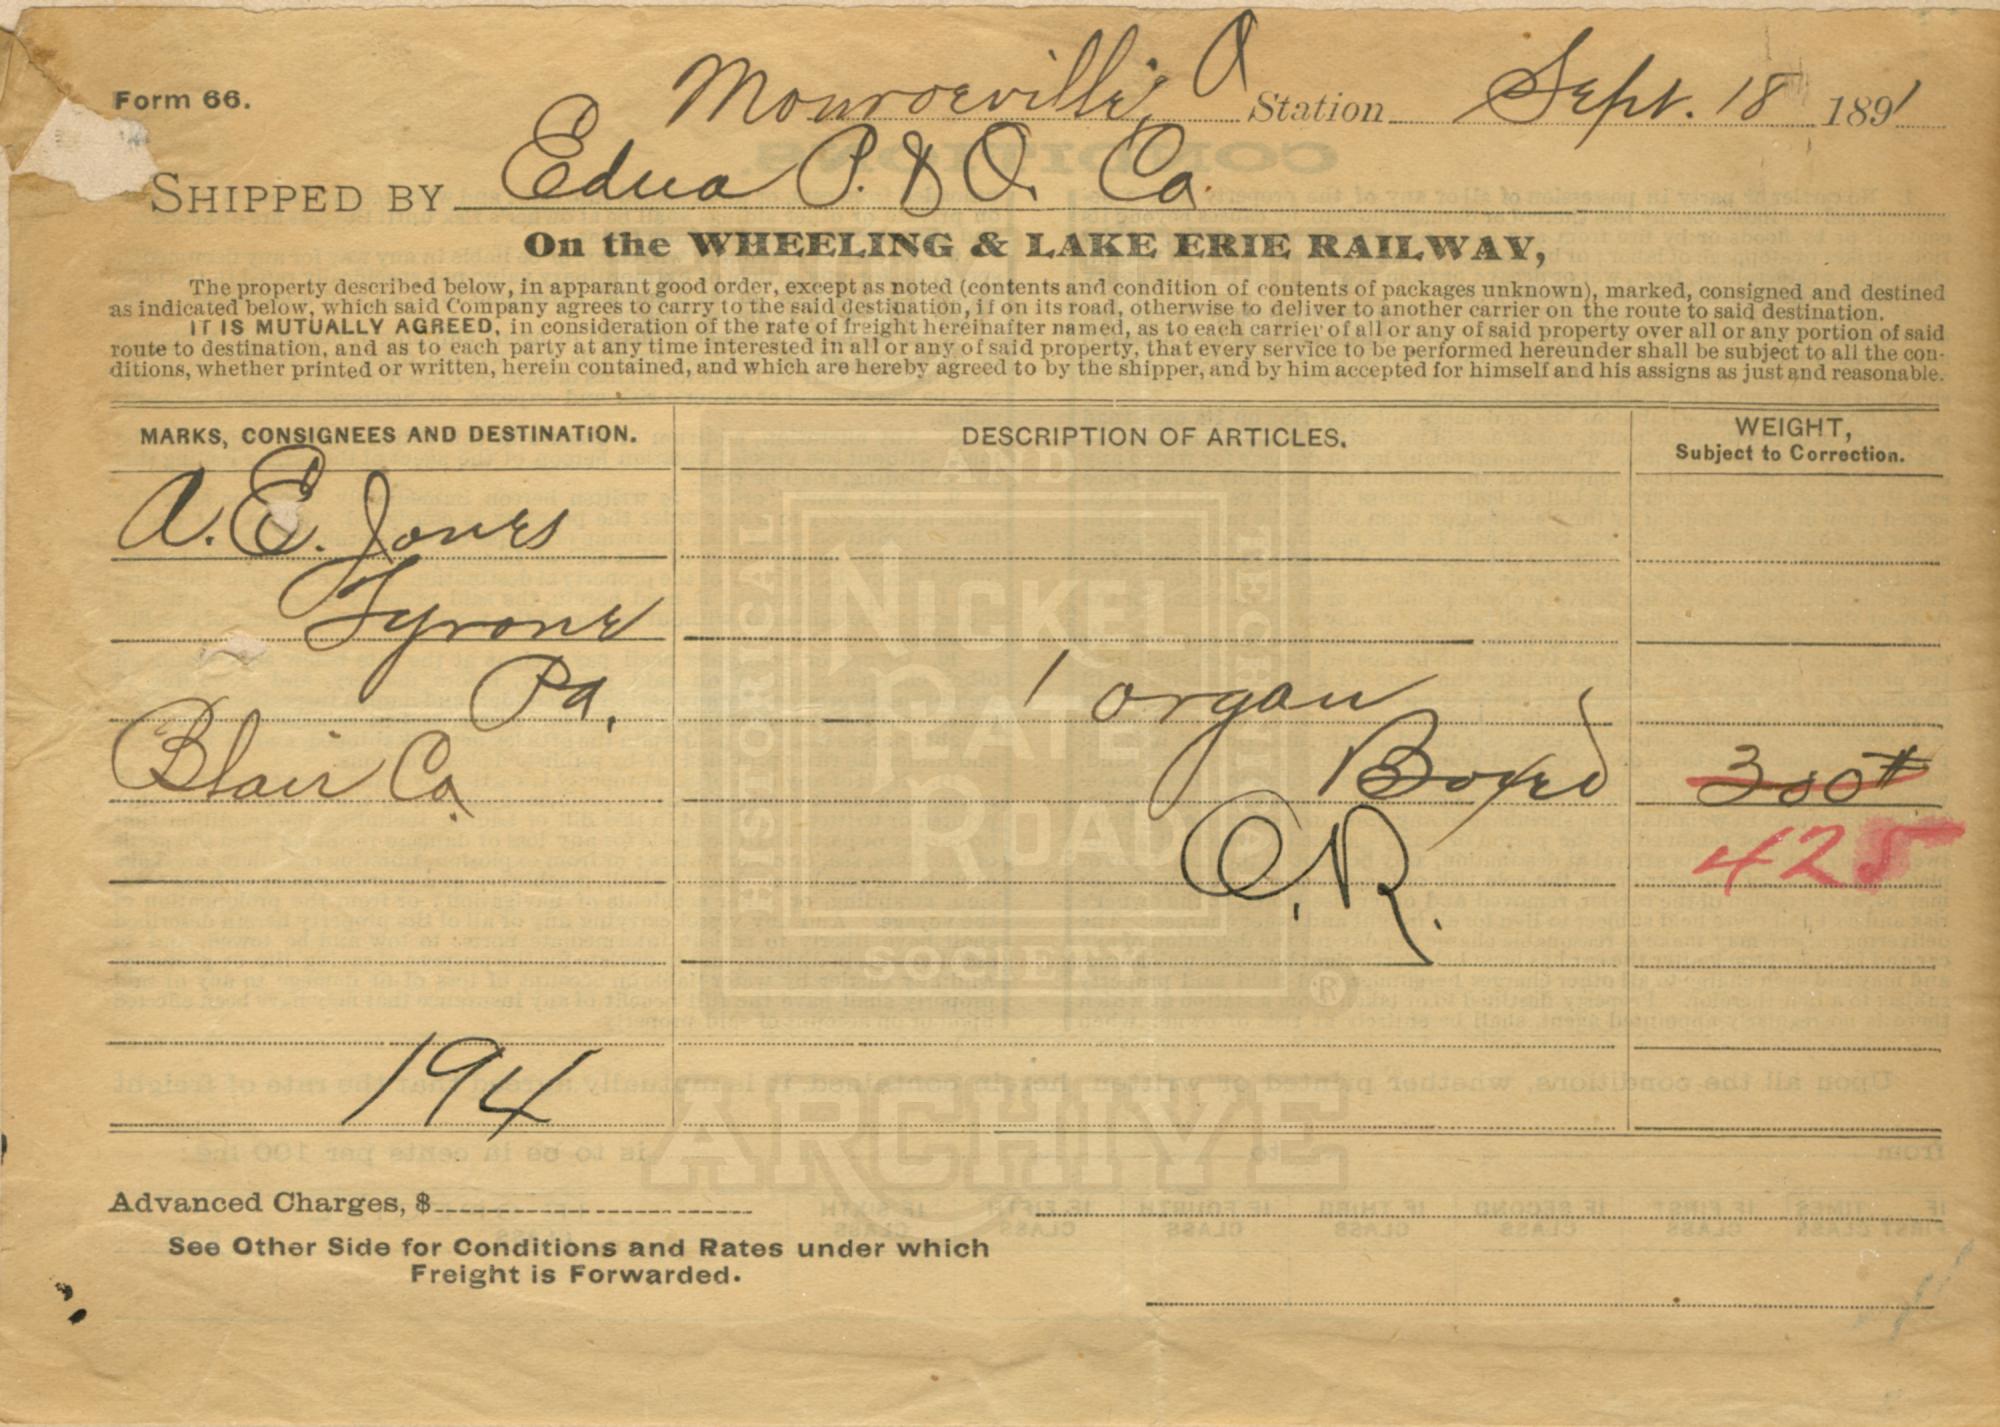 Form 66.
Monroeville, O Station Sept. 18 1891
SHIPPED BY Edna P. & O. Co.
On the WHEELING & LAKE ERIE RAILWAY,
The property described below, in apparant good order, except as noted (contents and condition of contents of packages unknown), marked, consigned and destined
as indicated below, which said Company agrees to carry to the said destination, if on its road, otherwise to deliver to another carrier on the route to said destination.
IT IS MUTUALLY AGREED, in consideration of the rate of freight hereinafter named, as to each carrier of all or any of said property over all or any portion of said
route to destination, and as to each party at any time interested in all or any of said property, that every service to be performed hereunder shall be subject to all the con-
ditions, whether printed or written, herein contained, and which are hereby agreed to by the shipper, and by him accepted for himself and his assigns as just and reasonable.
MARKS, CONSIGNEES AND DESTINATION. DESCRIPTION OF ARTICLES. WEIGHT,
Subject to Correction.
A. E. Jones
Tyrone
Pa. 1 organ
Blair Co. Boxed 300#
O. R. 425
194
Advanced Charges, $
See Other Side for Conditions and Rates under which
Freight is Forwarded.
NICKEL
PLATE
ROAD
HISTORICAL
AND
TECHNICAL
SOCIETY
ARCHIVE